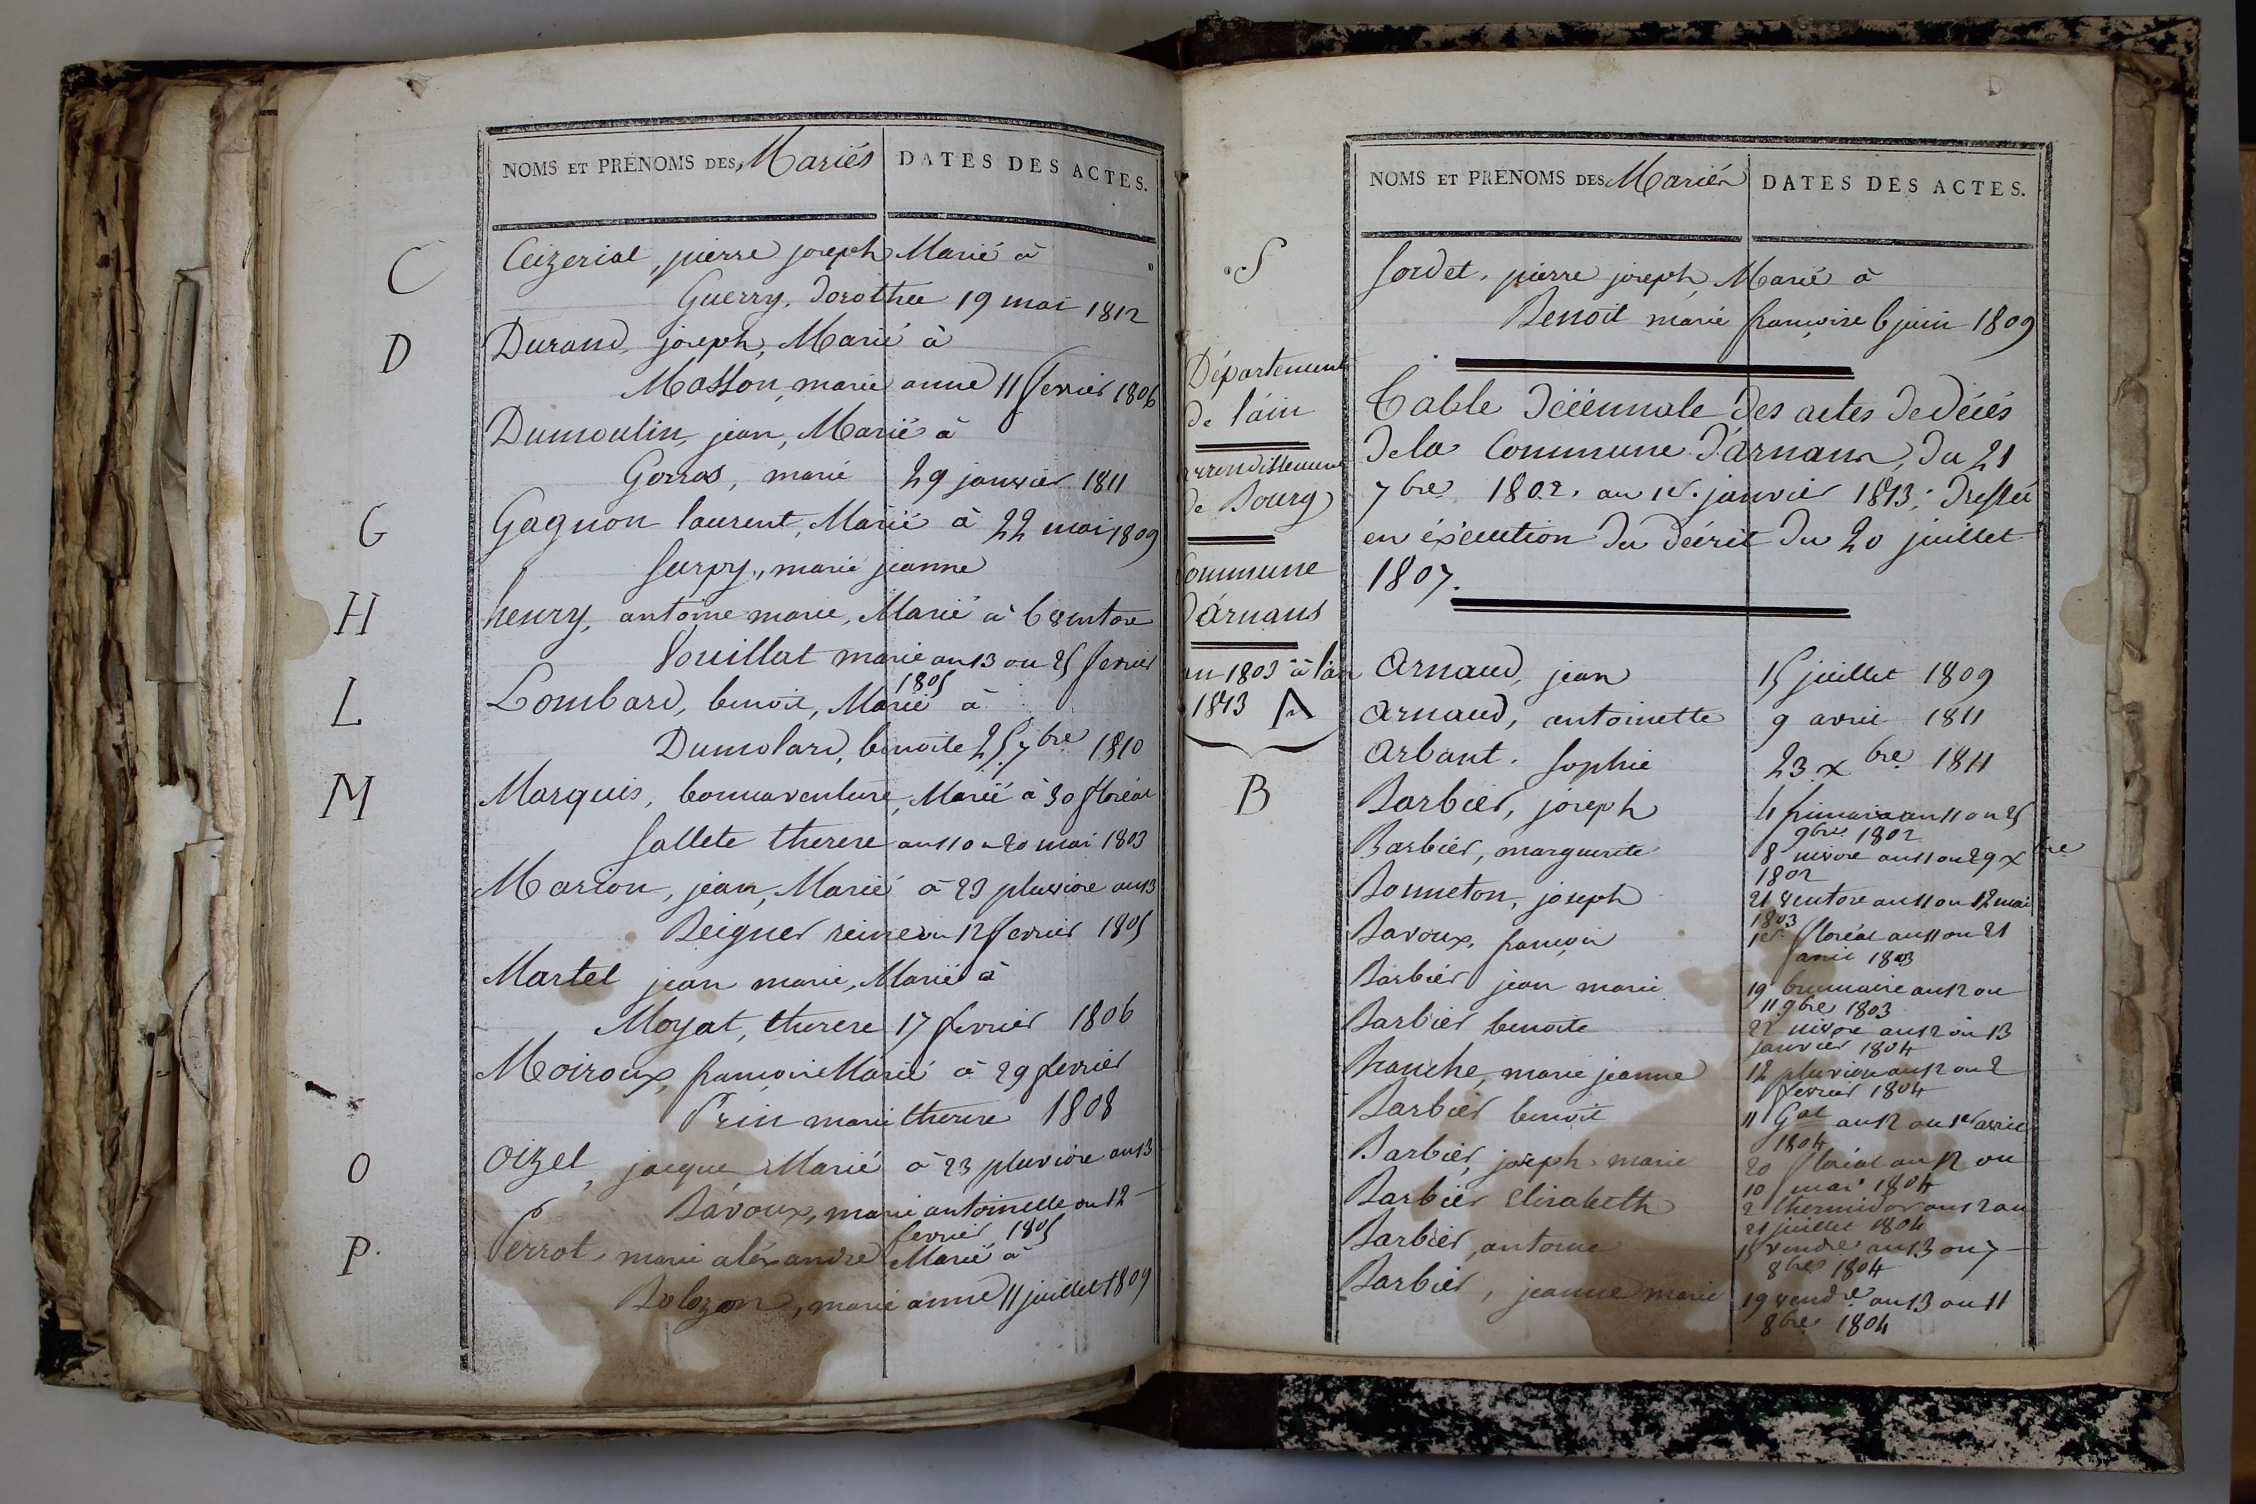 NOMS ET PRÉNOMS DES Mariés DATES DES ACTES.
C
Ceizeriat, pierre joseph Marié à
Guerry, Dorothée 19 mai 1812
D
Durand, joseph, Marié à
Masson, marie anne 11 fevrier 1806
Dumoulin, jean, Marié à
Gorras, marie 29 janvier 1811
G
Gagnon laurent, Marié à 22 mai 1809
marie jeanne
H
henry, antoine marie, Marié à 6 ventose
marie an 13 ou 25 fevrier
1805
L
Lombard, benoit, Marié à
Dumolard, benoite 25 7bre 1810
M
Marquis, bonnaventure, Marié à 30 floréal
Sallete therese an 11 ou 20 mai 1803
Marion, jean, Marié à 23 pluviose an 13
Beigner reine ou 12 fevrier 1805
Martel jean marie, Marié à
Moyat, therese 17 fevrier 1806
Moiroux, françois Marié à 29 fevrier
Prin marie therese 1808
O
Oizel, jacque Marié à 23 pluviose an 13
Bavoux, marie antoinette ou 12
fevrier 1805
P.
Perrot marie aléxandre Marié à
Bolozon, marie anne 11 juillet 1809
NOMS ET PRÉNOMS DES Mariés DATES DES ACTES.
S
Sordet, pierre joseph, Marié à
Benoit marie françoise 6 juin 1809
Département
de l'ain
arrondissement
de Bourg
Commune
d'Arnans
an 1803 à l'an
1813
Table décennale des actes de décès
de la Commune d'Arnans, du 21
7bre 1802. au 1er janvier 1813; dressée
en éxécution du décrit du 20 juillet
1807.
A
Arnaud, jean 15 juillet 1809
Arnaud, antoinette 9 avril 1811
Arbant. Sophie 23 xbre 1811
B
Barbier, joseph 4 frimaire an 11 ou 25
9bre 1802
Barbier, marguerite 8 nivose an 11 ou 29 xbre
1802
Bonneton, joseph 21 ventose an 11 ou 12 mai
1803
Bavoux, françois 1er floréal an 11 ou 21
avril 1803
Barbier jean marie 19 brumaire an 12 ou
11 9bre 1803
Barbier benoite 22 nivose an 12 ou 13
janvier 1804
Branche, marie jeanne 12 pluviose an 12 ou 2
fevrier 1804
Barbier benoit 11 Gal an 12 ou 1er avril
1804
Barbier, joseph marie 20 floréal an 12 ou
10 mai 1804
Barbier Elisabeth 2 thermidor an 12 ou
21 juillet 1804
Barbier, antoine 15 vendre an 13 ou 7
8bre 1804
Barbier, jeanne marie 19 vendre an 13 ou 11
8bre 1804